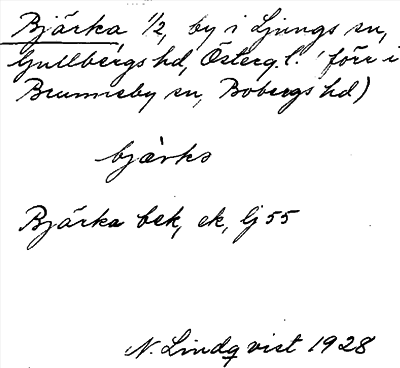 Bjärka 1/2, by i Ljungs sn,
Gullbergs hd, Österg. l. (förr i
Brunneby sn, Bobergs hd)
bjàrka
Bjärka bek, ek, lj 55
N. Lindqvist 1928